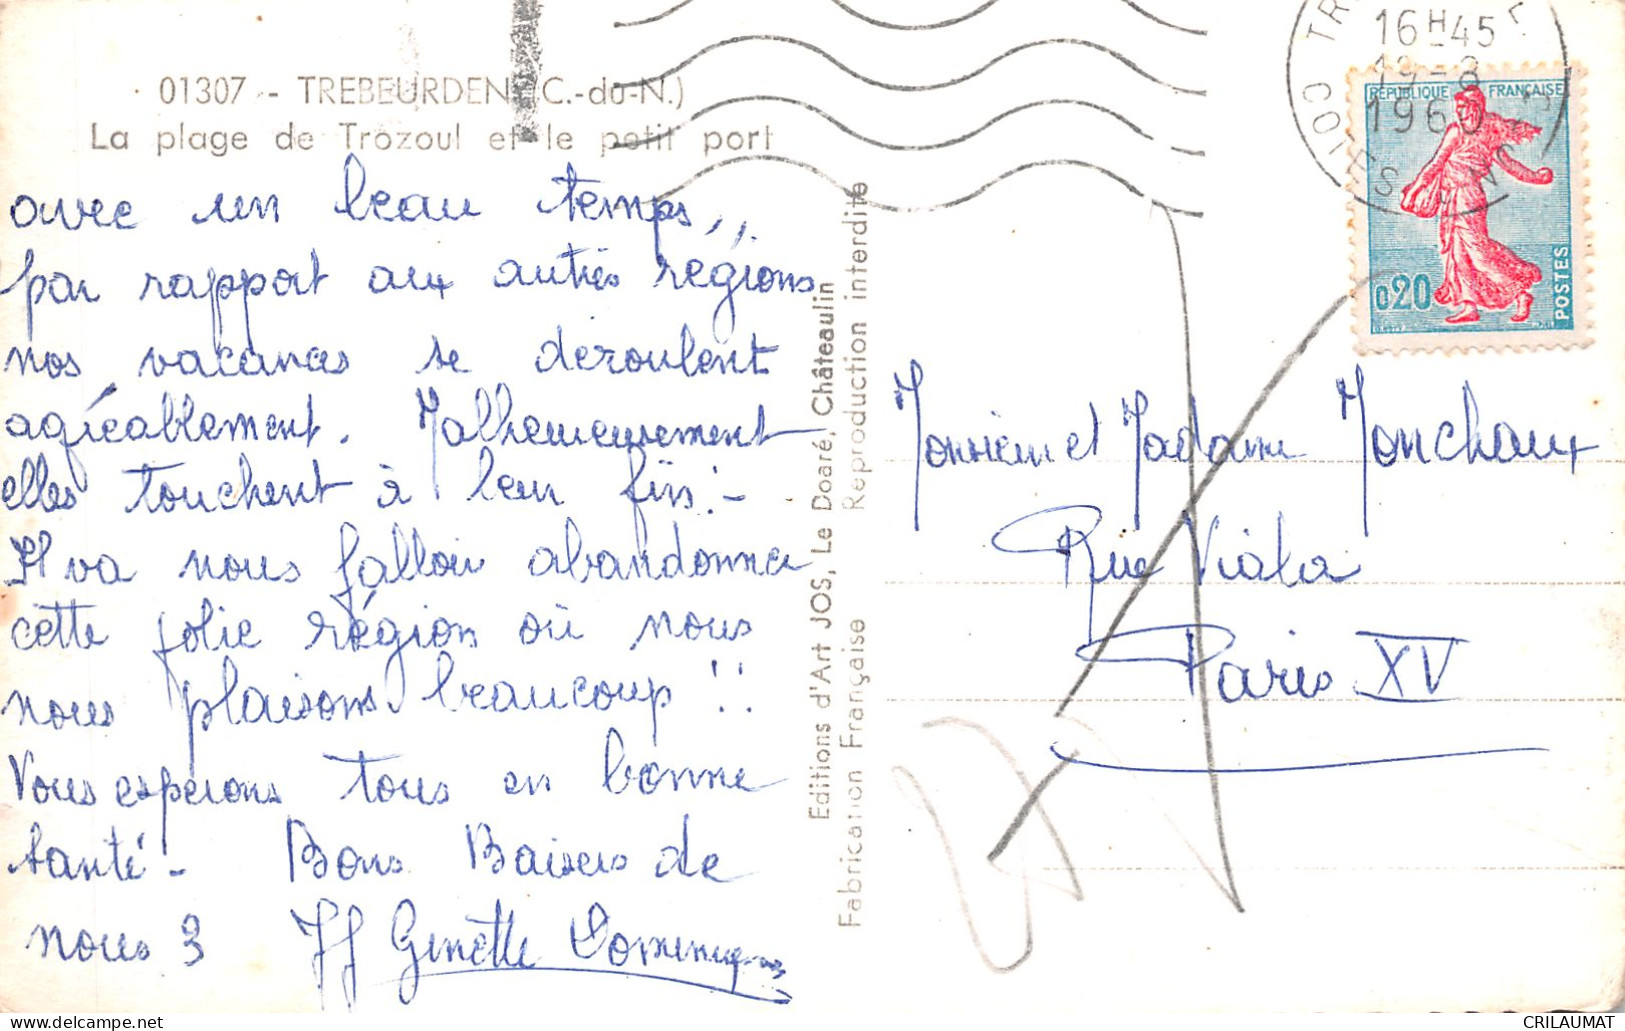 01307 - TREBEURDEN (C.-du-N.)
La plage de Trozoul et le petit port
avec un beau temps,,
par rapport aux autres régions
nos vacances se deroulent
agréablement. Malheureusement
elles touchent à leur fin! -
Il va nous falloir abandonner
cette jolie région où nous
nous plaisons beaucoup!!
Vous esperons tous en bonne
santé - Bons Baisers de
nous 3 JJ Ginette Dominique
Editions d'Art JOS, Le Doaré, Châteaulin
Fabrication Française Reproduction interdite
16H45
19-8
1960
COTES DU NORD
REPUBLIQUE FRANÇAISE
0,20
POSTES
Monsieur et Madame Monchaux
Rue Viala
Paris XV
CRILAUMAT